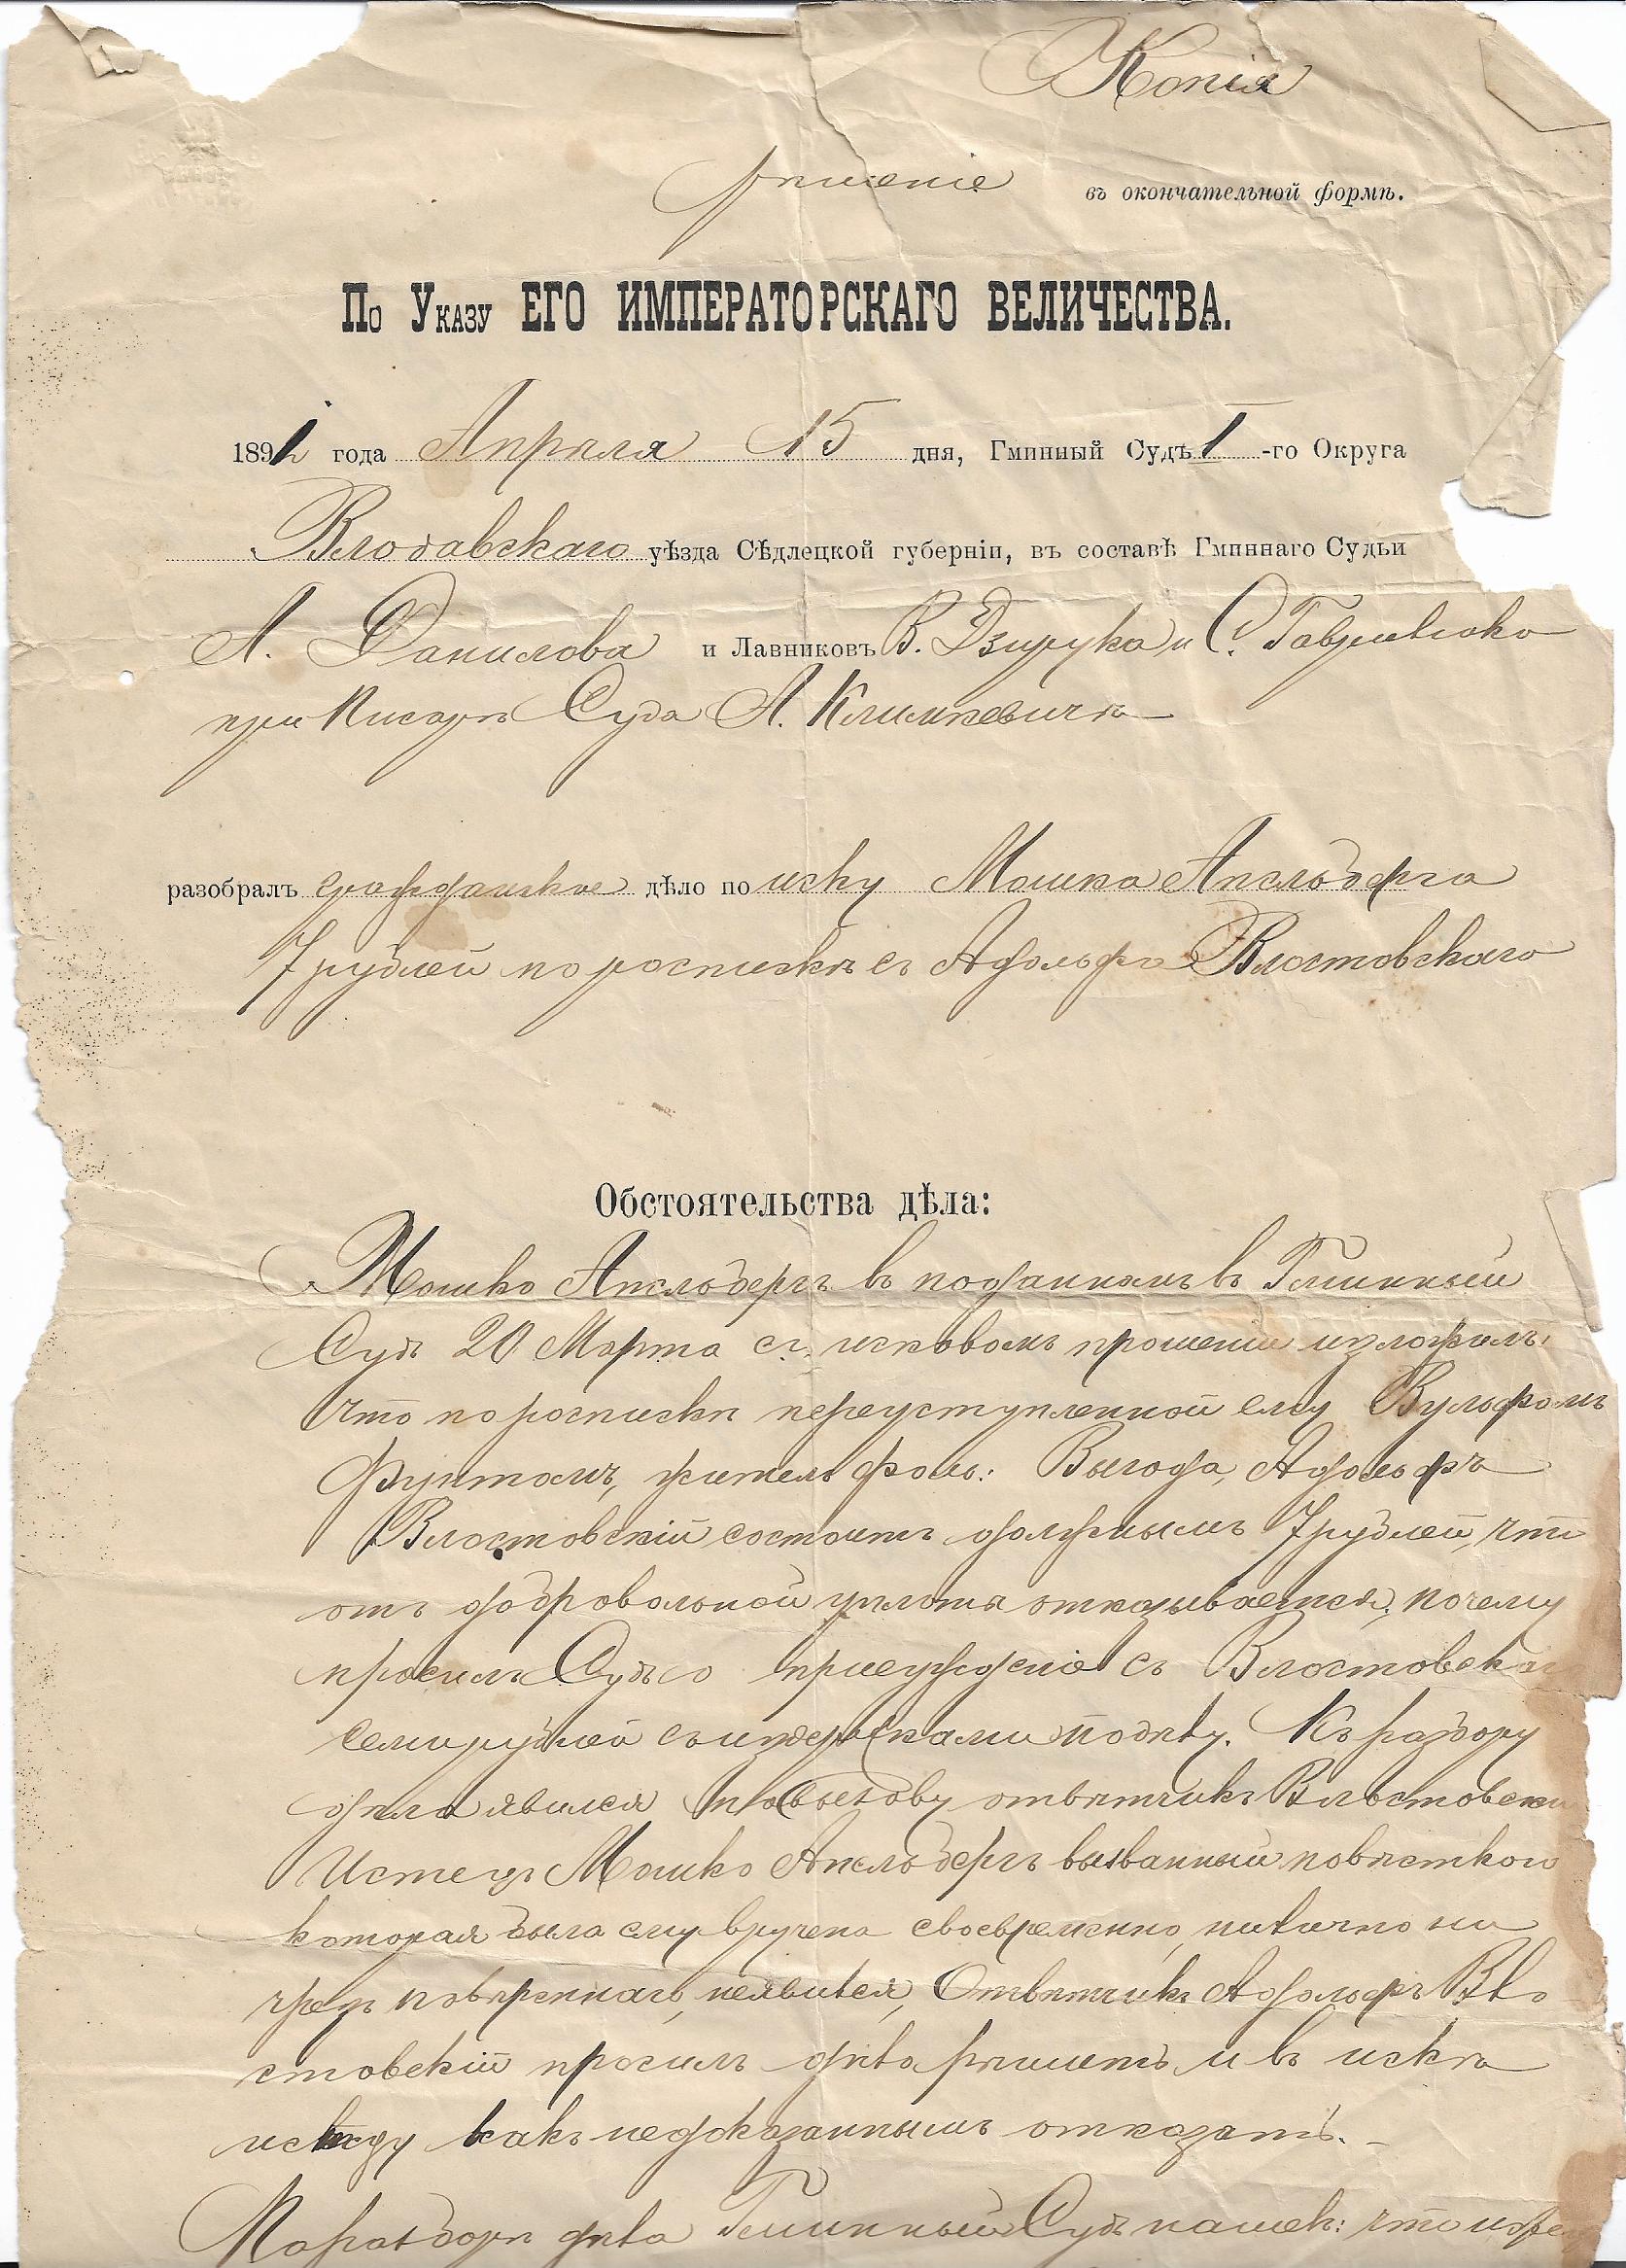 Копія
Рѣшеніе въ окончательной формѣ.
По Указу ЕГО ИМПЕРАТОРСКАГО ВЕЛИЧЕСТВА.
1891 года Апрѣля 15 дня, Гминный Судъ I-го Округа
Влодавскаго уѣзда Сѣдлецкой губерніи, въ составѣ Гминнаго Судьи
А. Данилова и Лавниковъ В. Дзирука и С. Гаврилюка
при Писарѣ Суда А. Климкевичѣ
разобралъ гражданское дѣло по иску Мошка Апельберга
7 рублей по роспискѣ съ Адольфа Влостовскаго
Обстоятельства дѣла:
Мошко Апельбергъ въ поданномъ въ Гминный
Судъ 20 Марта с.г. исковомъ прошеніи изложилъ:
что по роспискѣ переуступленной ему Вульфомъ
Фунтомъ, житель фоль: Выгода, Адольфъ
Влостовскій состоитъ должнымъ 7 рублей, что
отъ добровольной уплаты отказывается, почему
просилъ Судъ о присужденіе съ Влостовскаг
семи рублей съ издержками по дѣлу. Къ разбору
дѣла явился по вызову отвѣтчикъ Влостовскій
Истецъ Мошко Апельбергъ вызванный повѣсткою
которая была ему вручена своевременно, ни лично ни
чрезъ повѣреннаго, неявился, Отвѣтчикъ Адольфъ Вло
стовскій просилъ дѣло рѣшить и въ искѣ
истцу какъ недоказаннымъ отказать. -
По разборѣ дѣла Гминный Судъ нашелъ: что